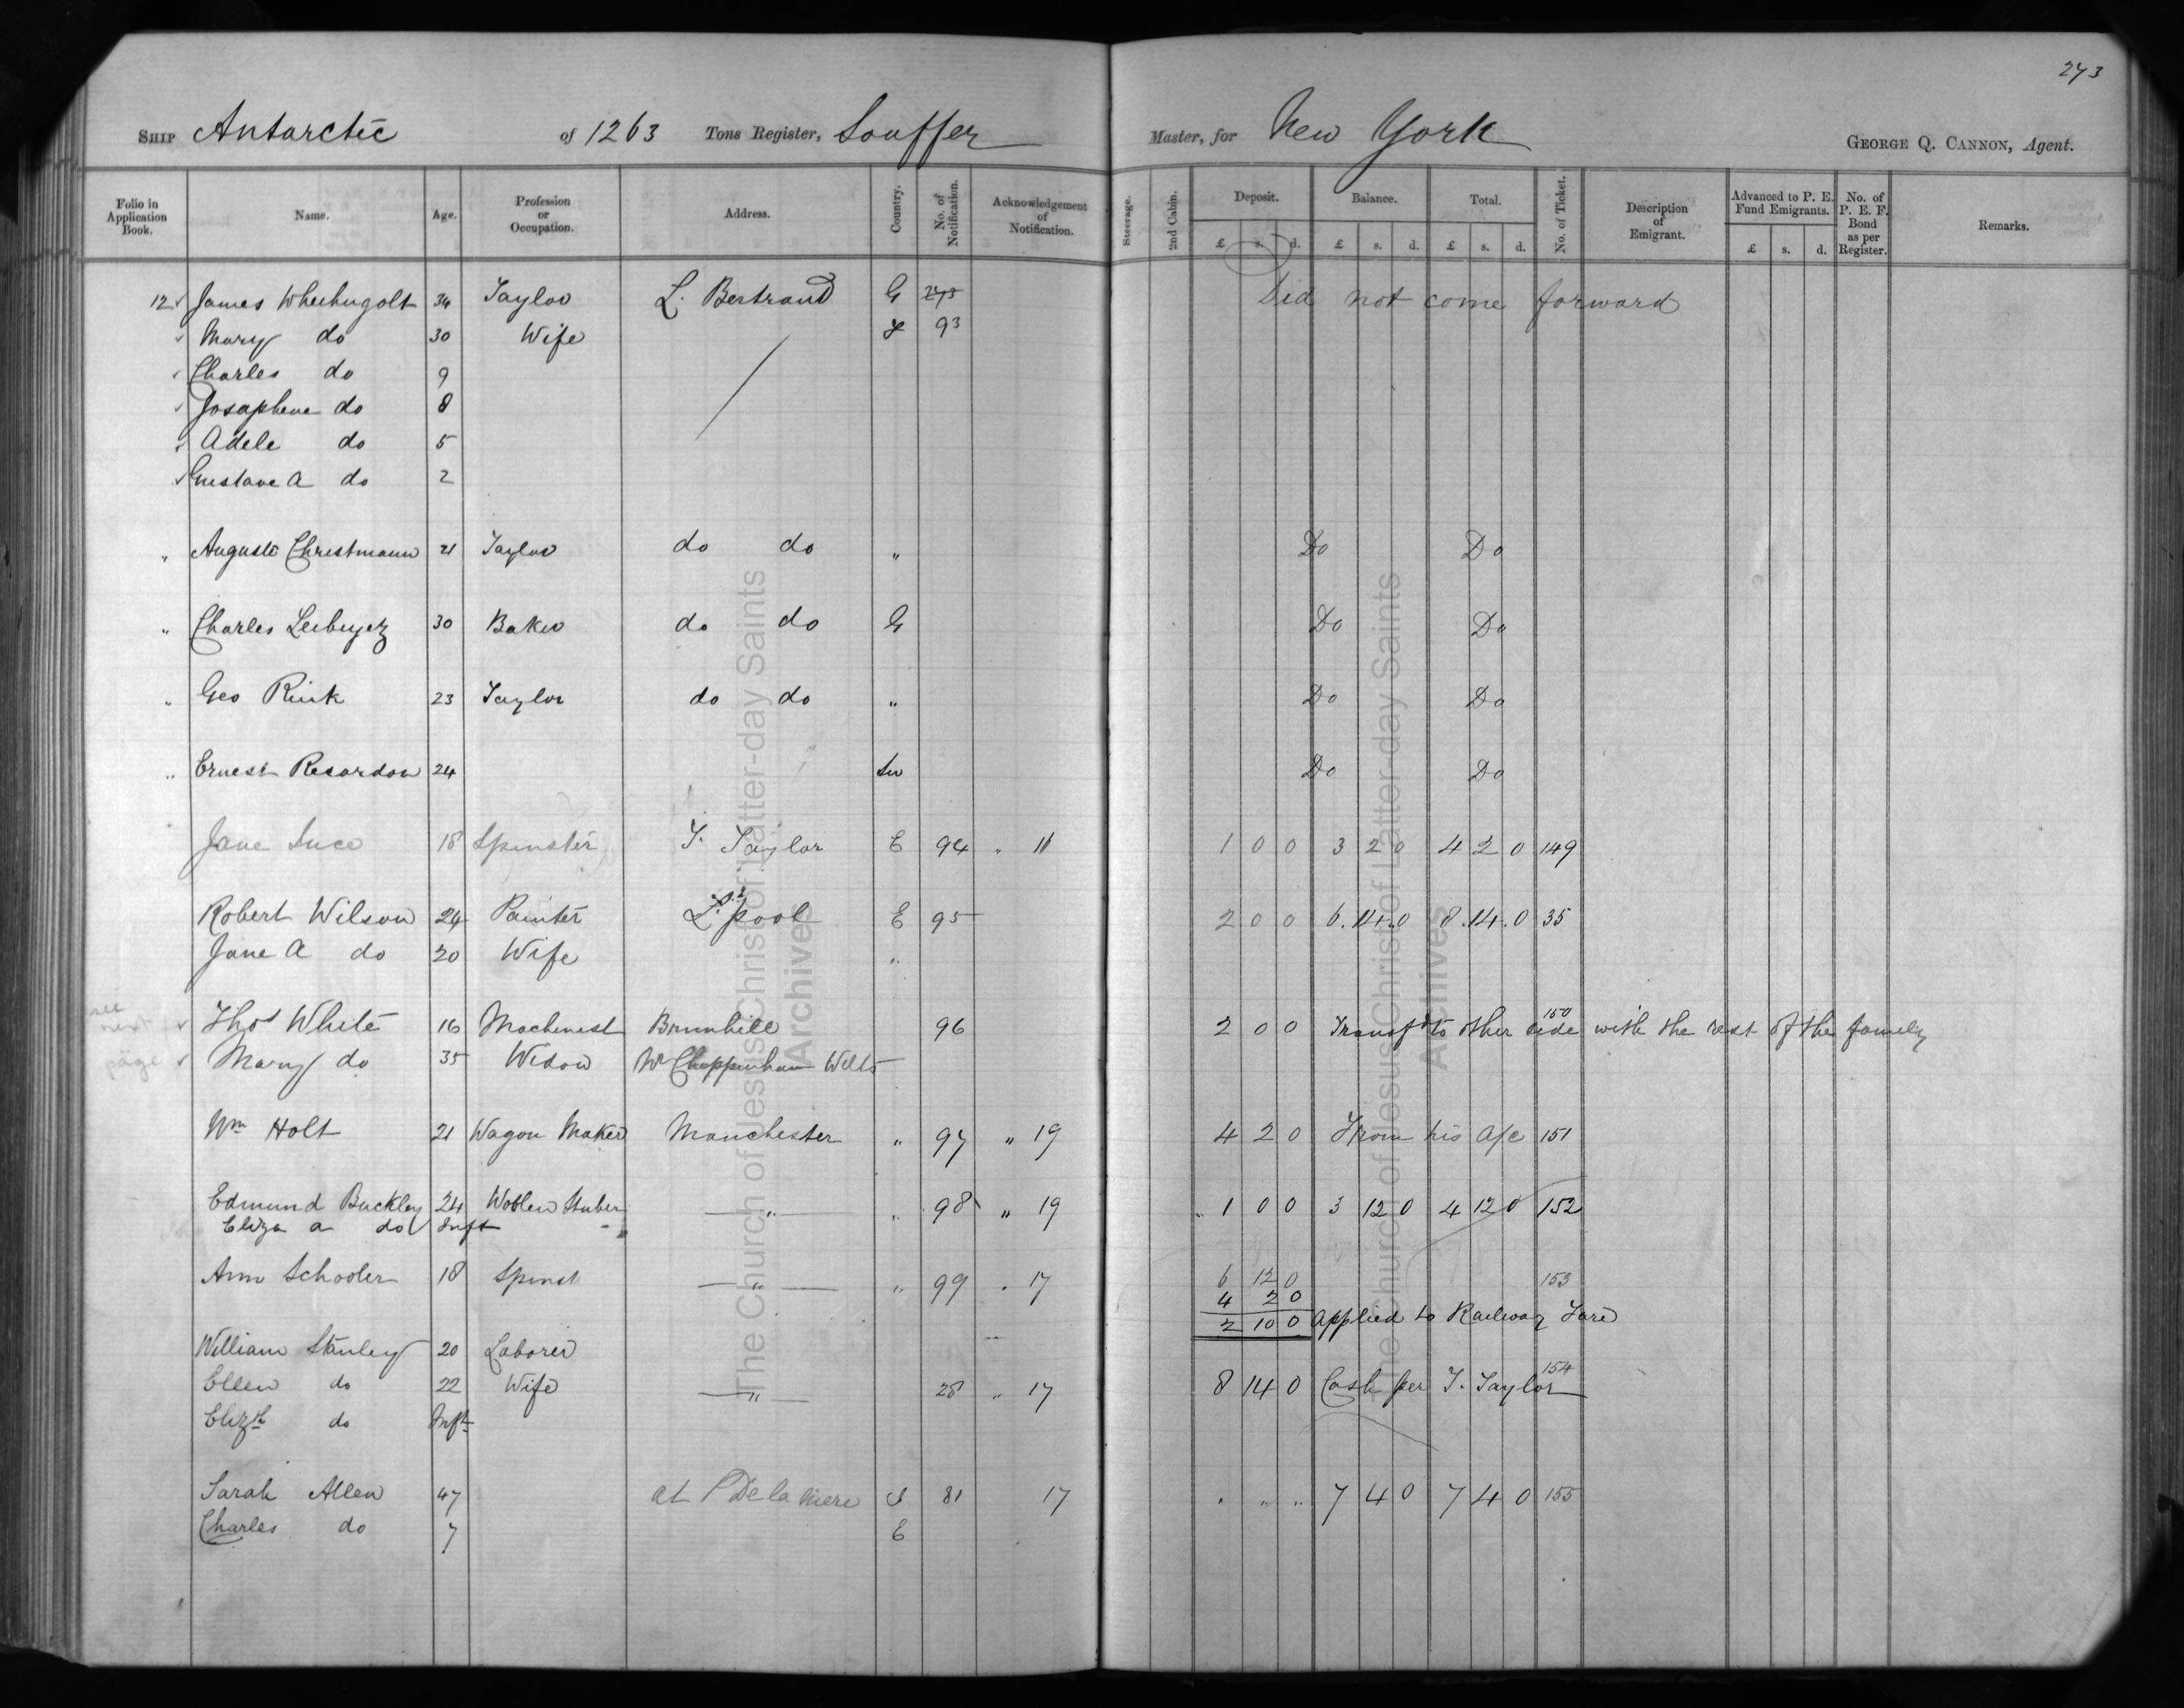 273
SHIP Antarctic of 1263 Tons Register, Souffer Master, for New York GEORGE Q. CANNON, Agent.
Folio in Application Book. Name. Age. Profession or Occupation. Address. Country. No. of Notification. Acknowledgement of Notification. Steerage. 2nd Cabin. Deposit. Balance. Total. No. of Ticket. Description of Emigrant. Advanced to P. E. Fund Emigrants. No. of P. E. F. Bond as per Register. Remarks.
£ s. d. £ s. d. £ s. d. £ s. d.
12 James 34 Taylor L. Bertrand G Did not come forward
Mary do 30 Wife 93
Charles do 9
Josaphene do 8
Adele do 5
Gustave A do 2
" Auguste Christmann 21 Taylor do do " Do Do
" Charles 30 Baker do do G Do Do
" Geo Rink 23 Taylor do do " Do Do
" Ernest Recordon 24 Sw Do Do
Jane Luce 18 Spinster T. Taylor E 94 " 11 1 0 0 3 2 0 4 2 0 149
Robert Wilson 24 Painter L.pool E 95 2 0 0 6.14.0 8.14.0 35
Jane A do 20 Wife "
see next page
Thos White 16 Machinest 96 2 0 0 Transfd to other side 150 with the rest of the family
Mary do 35 Widow Nr Chippenham Wilts
Wm Holt 21 Wagon Maker Manchester " 97 " 19 4 2 0 From his a/c 151
Edmund Buckley 24 — " — " 98 " 19 " 1 0 0 3 12 0 4 12 0 152
Eliza A do Inft
Ann Schooler 18 Spinst — " — " 99 " 17 6 12 0 153
4 2 0
2 10 0 applied to Railway Fare
William Stanley 20 Laborer
Ellen do 22 Wife — " — 28 " 17 8 14 0 Cash per T. Taylor 154
Elizth do Inft
Sarah Allen 47 at P De la Mere 81 17 " " " 7 4 0 7 4 0 155
Charles do 7 E
The Church of Jesus Christ of Latter-day Saints
Archives
The Church of Jesus Christ of Latter-day Saints
Archives